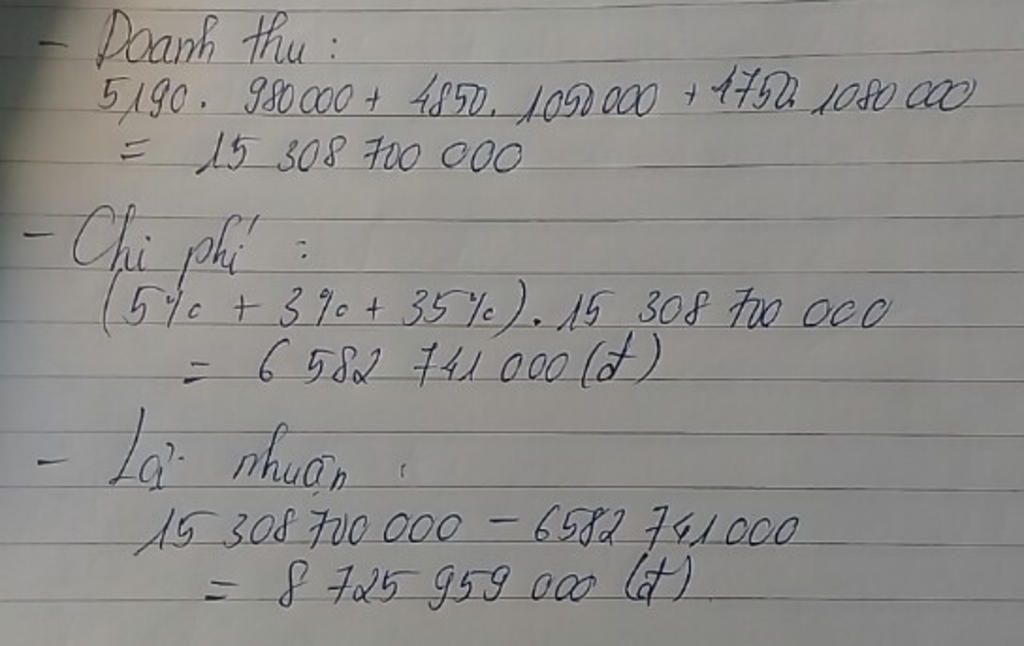 - Doanh thu :
5190. 980000 + 4850. 1050000 + 4750. 1080 000
= 15 308 700 000
- Chi phí :
(5% + 3% + 35%). 15 308 700 000
= 6 582 741 000 (đ)
- Lợi nhuận :
15 308 700 000 - 6582 741 000
= 8 725 959 000 (đ)